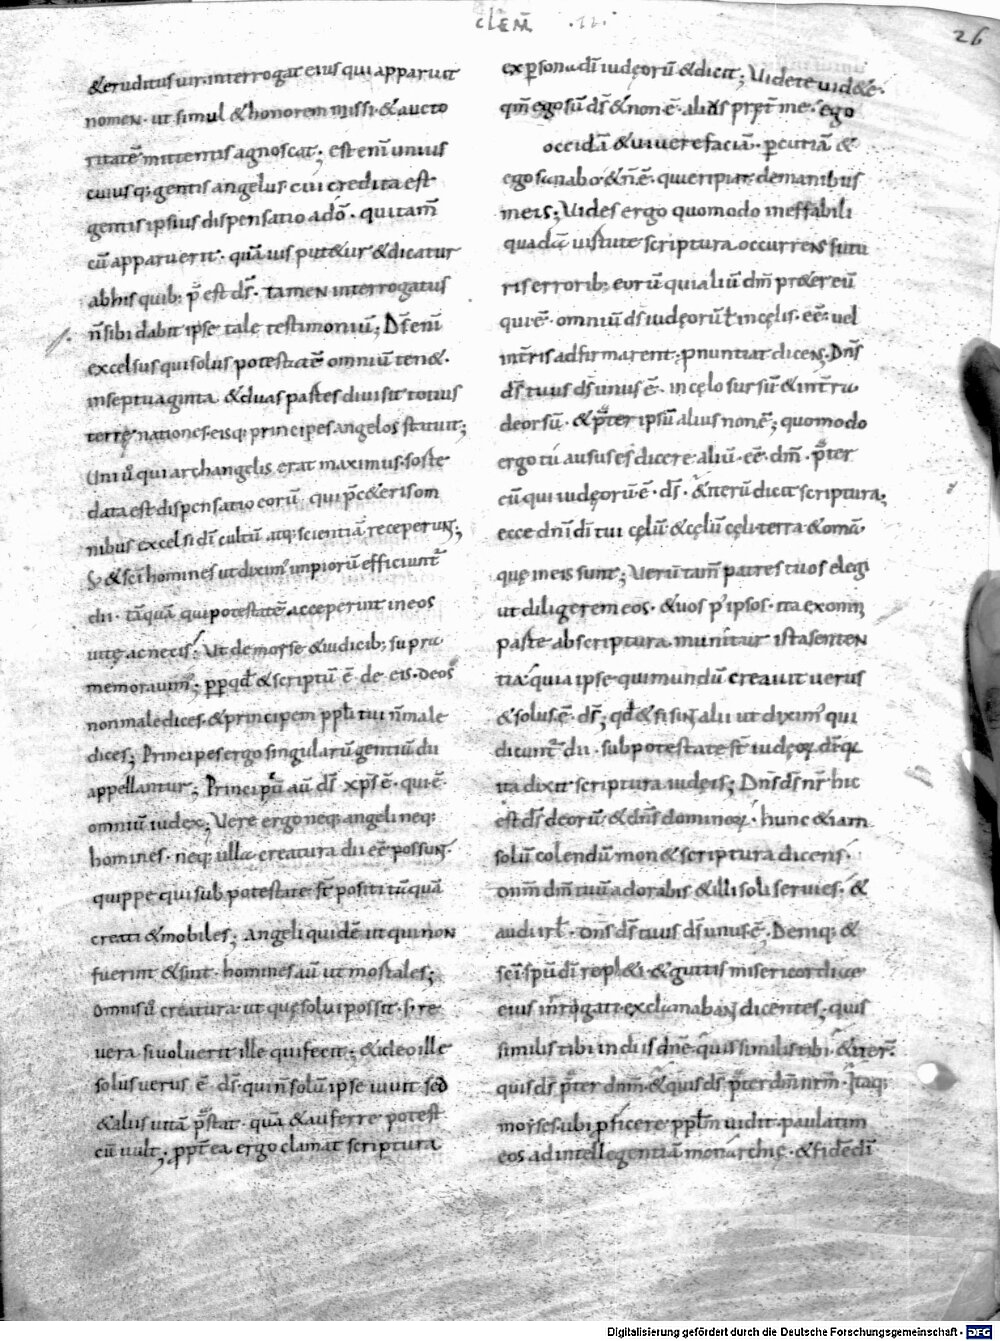 CLEM̄ .II.
26
& eruditus uir. interrogat eius qui apparuit
nomen. ut simul & honorem missi. & aucto
ritatē mittentis agnoscat; est enī unius
cuiusq; gentis angelus. cui credita est
gentis ipsius dispensatio a dō. qui tam̄
cū apparuerit. quā uis put&ur & dicatur
ab his quib; p̄ est dſ̄. tamen interrogatus
n̄ sibi dabit ipse tale testimoniū; Dſ̄ enī
excelsus qui solus potestatē omniū ten&.
in septuaginta & duas partes diuisit totius
terrę nationes. eisq; principes angelos statuit;
Uni ů qui archangelis erat maximus. sorte
data est dispensatio eorū. qui p̄ c&eris om
nibus excelsi dī cultū atq; scientiā receperunt;
S; & sc̄i homines ut diximꝰ impiorū efficiunt᷑
dii. tāquā qui potestatē acceperint in eos
uitę ac necis; Ut de morse & iudicib; supra
memorauimꝰ; ꝓp qđ & scriptū ē. de eis. Deos
non maledices. & principem ppl̄i tui n̄ male
dices; Principes ergo singularū gentiū dii
appellantur; Principū aū dſ̄ xp̄s ē. qui ē.
omniū iudex; Vere ergo neq; angeli neq;
homines. neq; ulla creatura dii eē possunt.
quippe qui sub potestate st̄ positi tāquā
creati & mobiles; Angeli quidē ut qui non
fuerint & sint. homines aū ut mortales;
Omnis ů creatura. ut quę solui possit. si re
uera si uoluerit ille qui fecit; & ideo ille
solus uerus ē dſ̄. qui n̄ solū ipse uiuit sed
& aliis uitā pstat. quā & auferre potest
cū uult; ꝓpt̄ ea ergo clamat scriptura
ex ꝑsona dī iudęorū & dicit; Videte uid&e.
qm̄ ego sū dſ̄ & non ē. alius pret̄ me. ego
occidā & uiuere faciā. ꝑcutiā &
ego sanabo. & n̄ ē. qui eripiat de manibus
meis; Vides ergo quomodo ineffabili
quadā uirtute scriptura occurrens futu
ris errorib; eorū qui aliū dm̄ pret̄ eū
qui ē. omniū dſ̄ iudęorū t̄ in cęlis. eē. uel
in t̄ris adfirmarent. ꝓnuntiat dicens. Dn̄s
dſ̄ tuus dſ̄ unus ē. in cęlo sursū & in t̄ra
deorsū. & pter ipsū alius non ē; quomodo
ergo tu ausus es dicere aliū. eē. dm̄. pter
eū qui iudęorū ē. dſ̄. & iterū dicit scriptura;
ecce dn̄i dī tui cęlū & cęlū cęli. terra & om̄a
quę in eis sunt; Verū tam̄ patres tuos elegi
ut diligerem eos. & uos pꝰ ipsos. ita ex omi
parte ab scriptura munitur ista senten
tia. quia ipse qui mundū creauit uerus
& solus. ē. dſ̄; qđ & si sint alii ut diximꝰ qui
dicunt᷑ dii. sub potestate st̄ iudęoꝝ dī. q;
ita dixit scriptura iudęis; Dn̄s dſ̄ nr̄ hic
est dſ̄ deorū. & dn̄s dominoꝝ. hunc & iam
solū colendū mon& scriptura dicens.
dnm̄ dm̄ tuū adorabis & illi soli seruies. &
audi isrl̄. Dn̄s dſ̄ tuus dſ̄ unus ē. Deniq; &
sc̄i spū dī repleti. & guttis misericordiae
eius inrogati. exclamabant dicentes. quis
similis tibi in diis dn̄e. quis similis tibi. & iter.
quis dſ̄ pter dnm̄. & quis dſ̄ pter dm̄ nrm̄. Itaq;
moyses. ubi ꝓficere ppl̄m uidit. paulatim
eos ad intellegentiā monarchię. & fidē dī
Digitalisierung gefördert durch die Deutsche Forschungsgemeinschaft - DFG